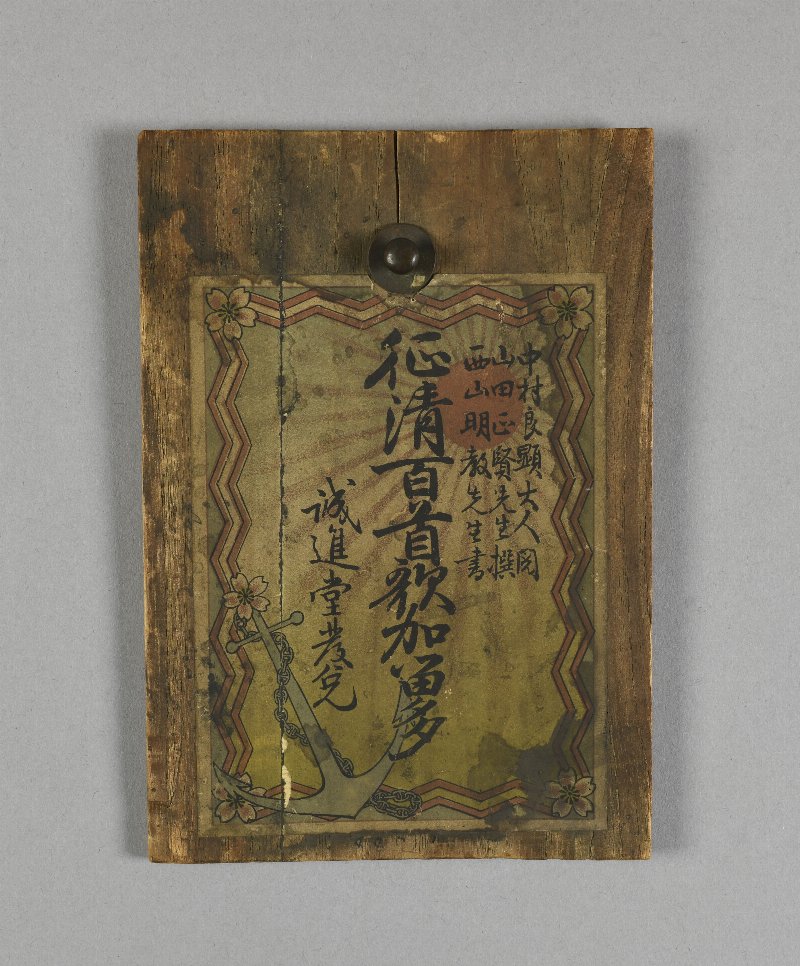 中村良顕大人閲
山田正賢先生撰
西山明教先生書
征清百首歌加留多
誠進堂發兌